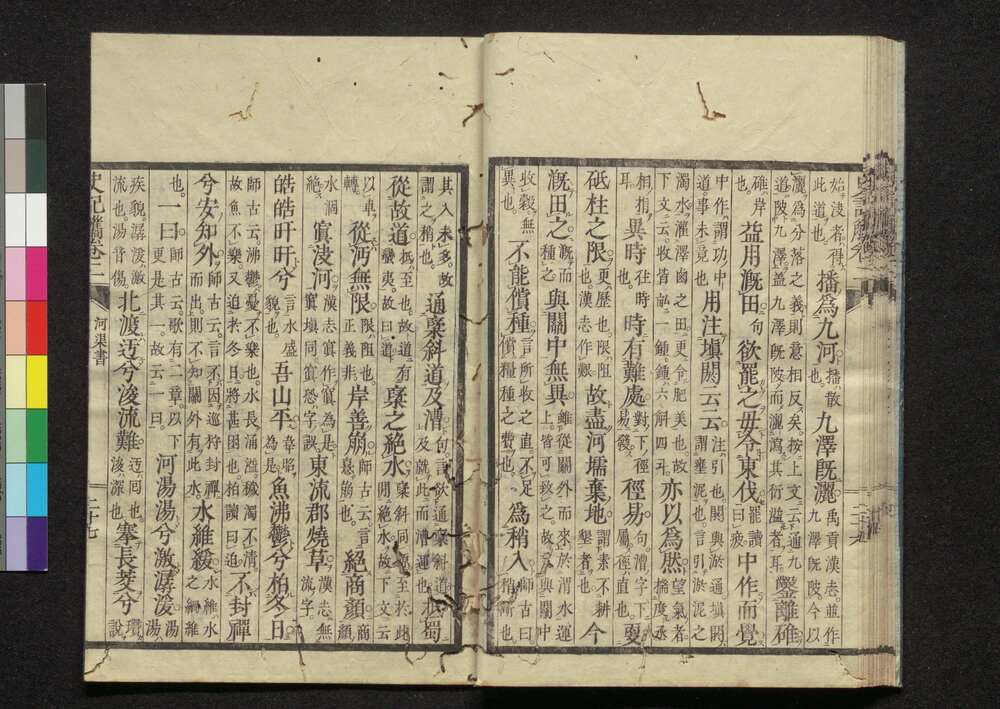 始浚者得此道也 播為九河 播散也 九澤既灑 禹貢漢志並作九澤既陂今以
灑為分落之義則意相反矣按上文云通九道陂九澤蓋九澤既陂而灑瀉其衍溢者耳 鑿離碓
碓岸也 益用溉田 句 欲罷之毋令東伐 罷讀曰疲 中作而覺
中作謂功中道事未竟也 用注塡閼云云 注引也閼與淤通塡閼謂壅泥也言引淤泥之
濁水灌澤鹵之田更令肥美也故下文云收皆畝一鍾鍾六斛四斗 亦以為然 望氣者揣度
相指耳 異時 往時也 時有難處 對下徑易發 徑易 句漕字下屬徑直也 更
砥柱之限 更歷也限阻也漢志作艱 故盡河壖棄地 謂素不耕墾者也 今
溉田之 溉而種之 與關中無異 雖從關外而來於渭水運上皆可致之故云與關中
收穀無異也 不能償種 言所收之直不足償糧種之費也 為稍入 師古曰稍漸也
其入未多故謂之稍也 通褒斜道及漕 句言欲通褒斜道及就此而漕運也 抵蜀
從故道 抵至也故道有蠻夷故曰道 褒之絕水 褒斜同源至於此間絕水故下文云
以車轉 從沔無限 限阻也正義非 岸善崩 師古云言憙崩也 絕商顏 商顏
水涸絕 窴決河 漢志窴作寘為是寘塡同窴恐字誤 東流郡燒草 漢志無流字
皓皓旰旰兮 言水盛貌也 吾山平 韋昭為是 魚沸鬱兮柏冬日
師古云沸鬱憂不樂也水長涌溢穢濁不清故魚不樂又迫於冬日將甚困也柏讀曰迫 不封禪
兮安知外 師古云言不因巡狩封禪而出則不知關外有此水 水維緩 水維水之綱維
也 一曰 師古云歌有二章以下更是其一故云一曰 河湯湯兮激潺湲 湯湯
疾貌潺湲激流也湯音傷 北渡迂兮浚流難 迂回也浚深也 搴長茭兮 瓚說
史記觿卷二 河渠書 二十七